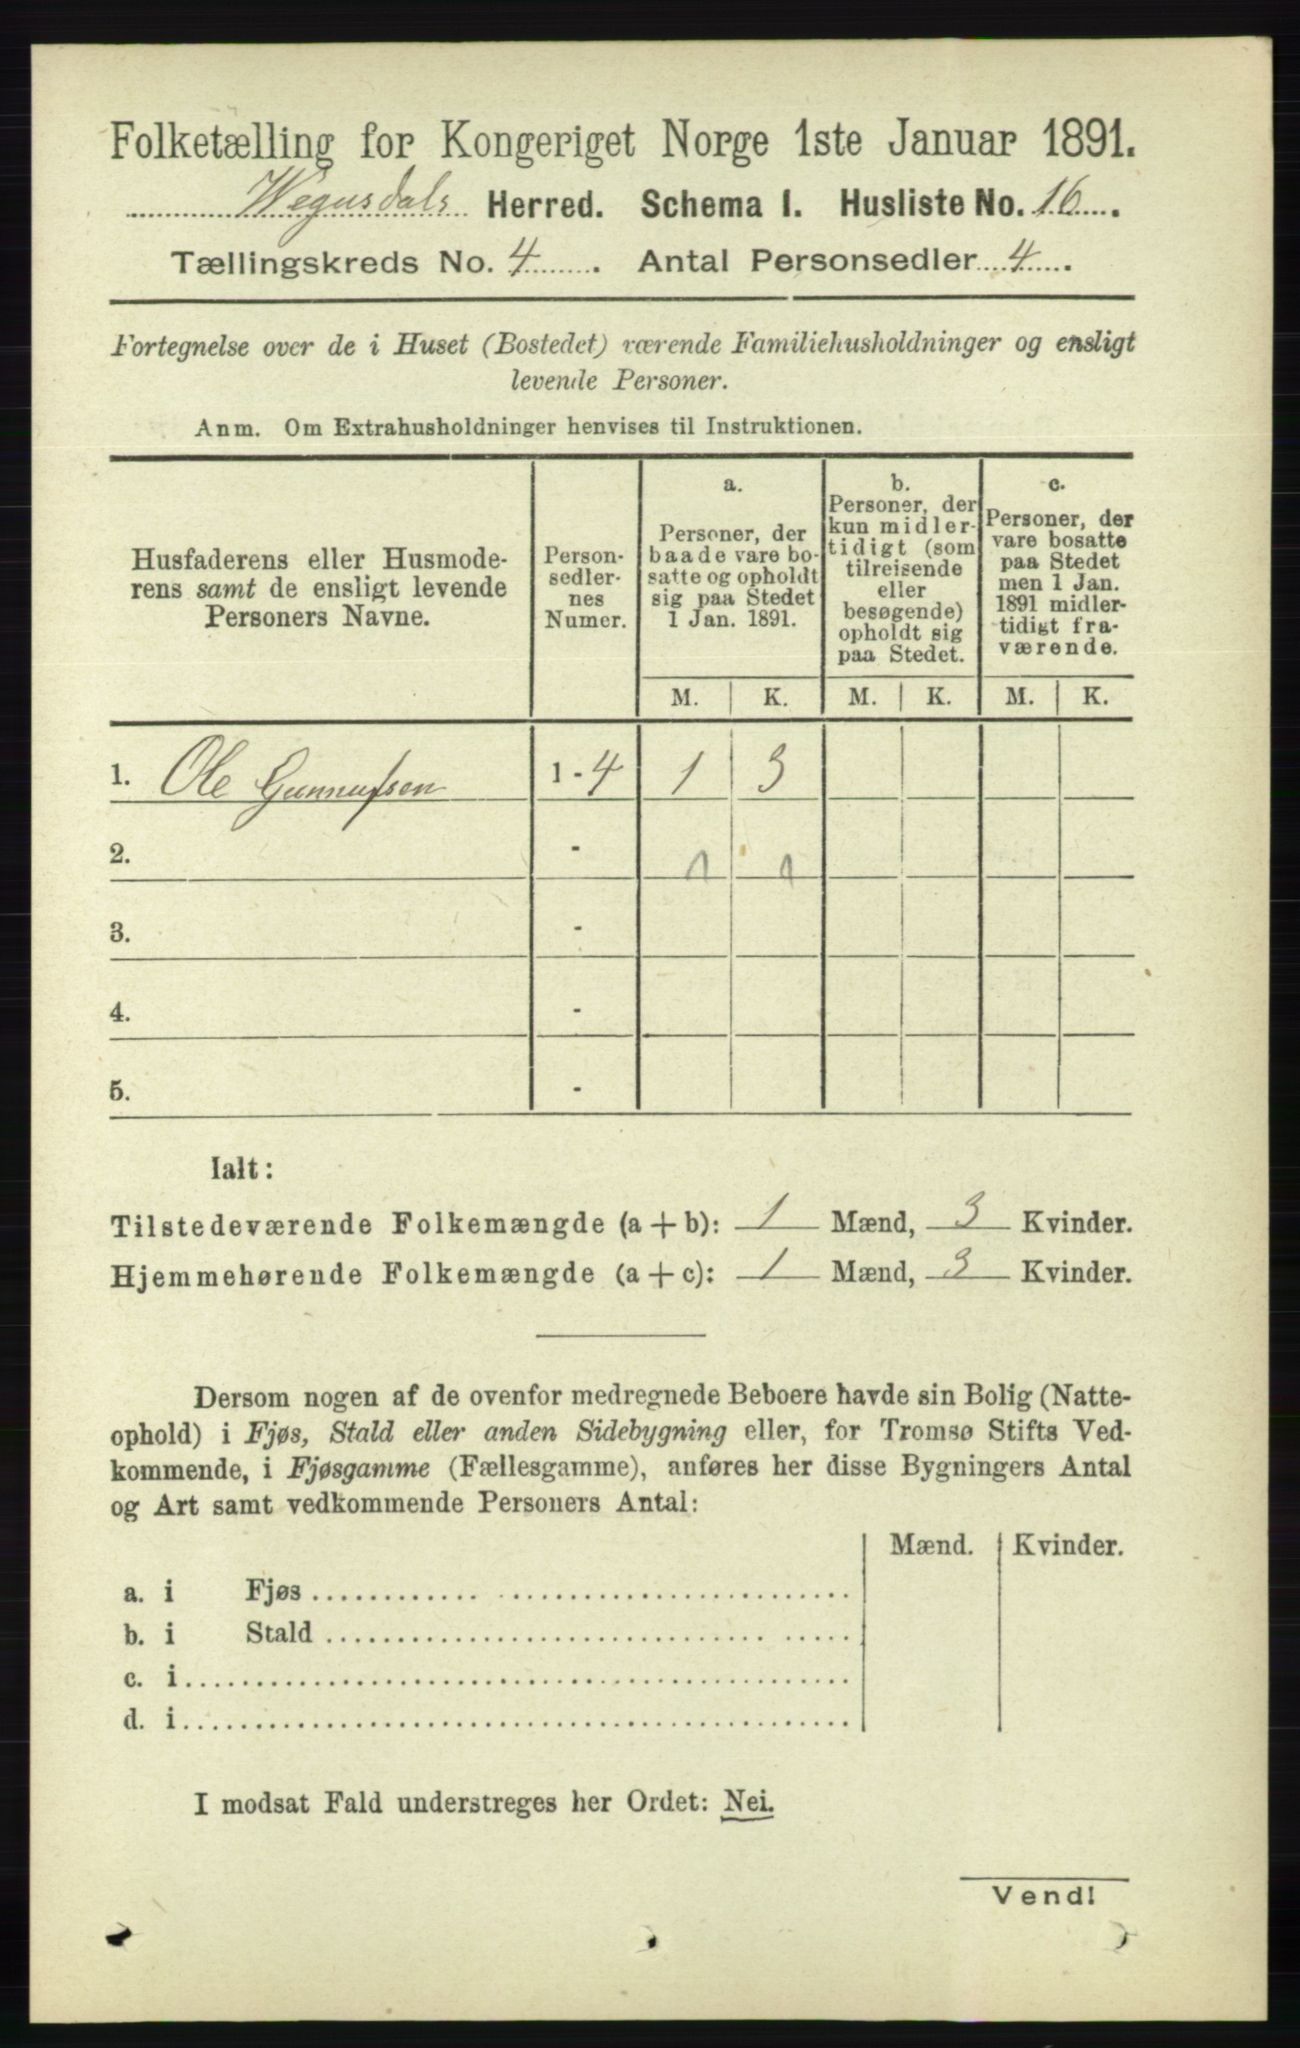 Folketælling for Kongeriget Norge 1ste Januar 1891.
Wegusdals Herred. Schema I. Husliste No. 16
Tællingskreds No. 4 . Antal Personsedler 4 .
Fortegnelse over de i Huset (Bostedet) værende Familiehusholdninger og ensligt
levende Personer.
Anm. Om Extrahusholdninger henvises til Instruktionen.
Husfaderens eller Husmode-
rens samt de ensligt levende
Personers Navne.
Person-
sedler-
nes
Numer.
a.
Personer, der
baade vare bo-
satte og opholdt
sig paa Stedet
1 Jan. 1891.
b.
Personer, der
kun midler-
tidigt (som
tilreisende
eller
besøgende)
opholdt sig
paa Stedet.
c.
Personer, der
vare bosatte
paa Stedet
men 1 Jan.
1891 midler-
tidigt fra-
værende.
M. K. M. K. M. K.
1. Ole Gunnufsen 1 - 4 1 3
2. - 1 1
3. -
4. -
5. -
Ialt:
Tilstedeværende Folkemængde (a + b): 1 Mænd, 3 Kvinder.
Hjemmehørende Folkemængde (a + c): 1 Mænd, 3 Kvinder.
Dersom nogen af de ovenfor medregnede Beboere havde sin Bolig (Natte-
ophold) i Fjøs, Stald eller anden Sidebygning eller, for Tromsø Stifts Ved-
kommende, i Fjøsgamme (Fællesgamme), anføres her disse Bygningers Antal
og Art samt vedkommende Personers Antal:
Mænd. Kvinder.
a. i Fjøs
b. i Stald
c. i
d. i
I modsat Fald understreges her Ordet: Nei.
Vend!